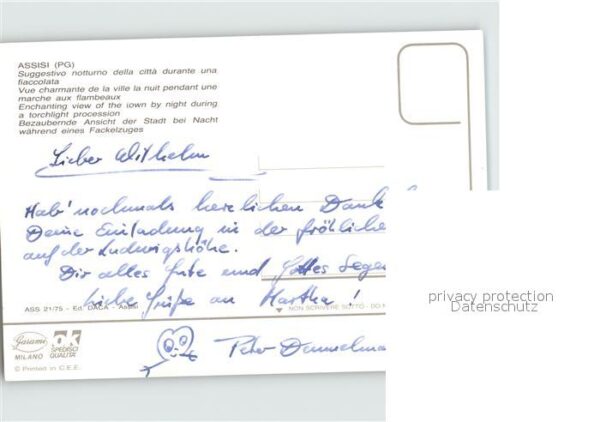 ASSISI (PG)
Suggestivo notturno della città durante una
fiaccolata
Vue charmante de la ville la nuit pendant une
marche aux flambeaux
Enchanting view of the town by night during
a torchlight procession
Bezaubernde Ansicht der Stadt bei Nacht
während eines Fackelzuges
Lieber Wilhelm
Hab' nochmals herzlichen Dank
Deine Einladung in der fröhliche
auf der Ludwigshöhe.
Dir alles Gute und Gottes Segen
Liebe Grüße an Martha!
ASS 21/75 - Ed. DACA - Assisi
NON SCRIVERE SOTTO - DO N
privacy protection
Datenschutz
Garami
MILANO
ok
SPEDISCI
QUALITÀ
Peter
© Printed in C.E.E.